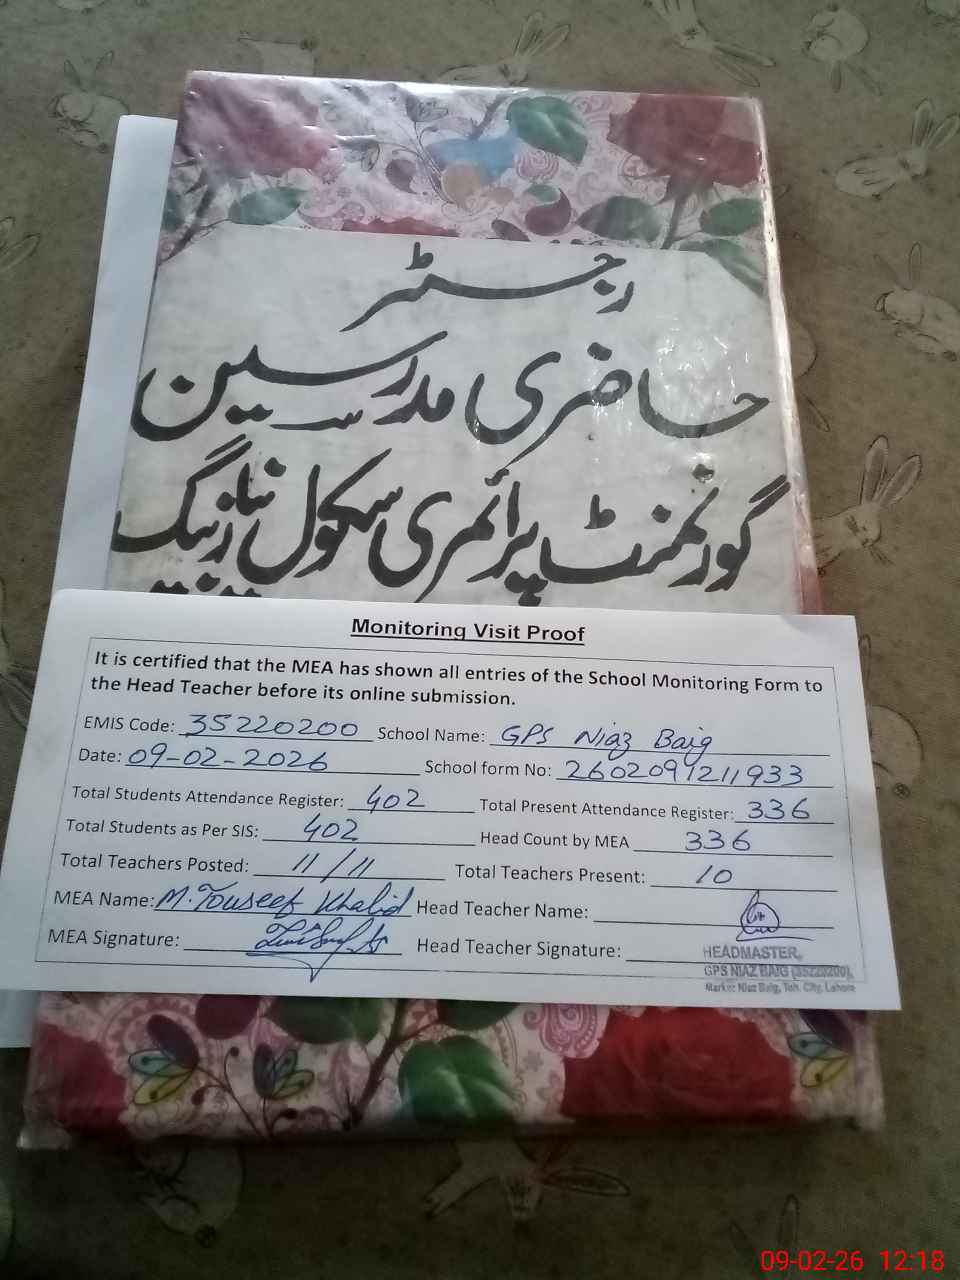 رجسٹر
حاضری مدرسین
گورنمنٹ پرائمری سکول نیاز بیگ
Monitoring Visit Proof
It is certified that the MEA has shown all entries of the School Monitoring Form to
the Head Teacher before its online submission.
EMIS Code: 35220200 School Name: GPS Niaz Baig
Date: 09-02-2026 School form No: 2602091211933
Total Students Attendance Register: 402 Total Present Attendance Register: 336
Total Students as Per SIS: 402 Head Count by MEA 336
Total Teachers Posted: 11/11 Total Teachers Present: 10
MEA Name: M. Touseef Khalid Head Teacher Name:
MEA Signature: Head Teacher Signature:
HEADMASTER,
GPS NIAZ BAIG (35220200),
Markaz Niaz Baig, Teh. City, Lahore
09-02-26 12:18